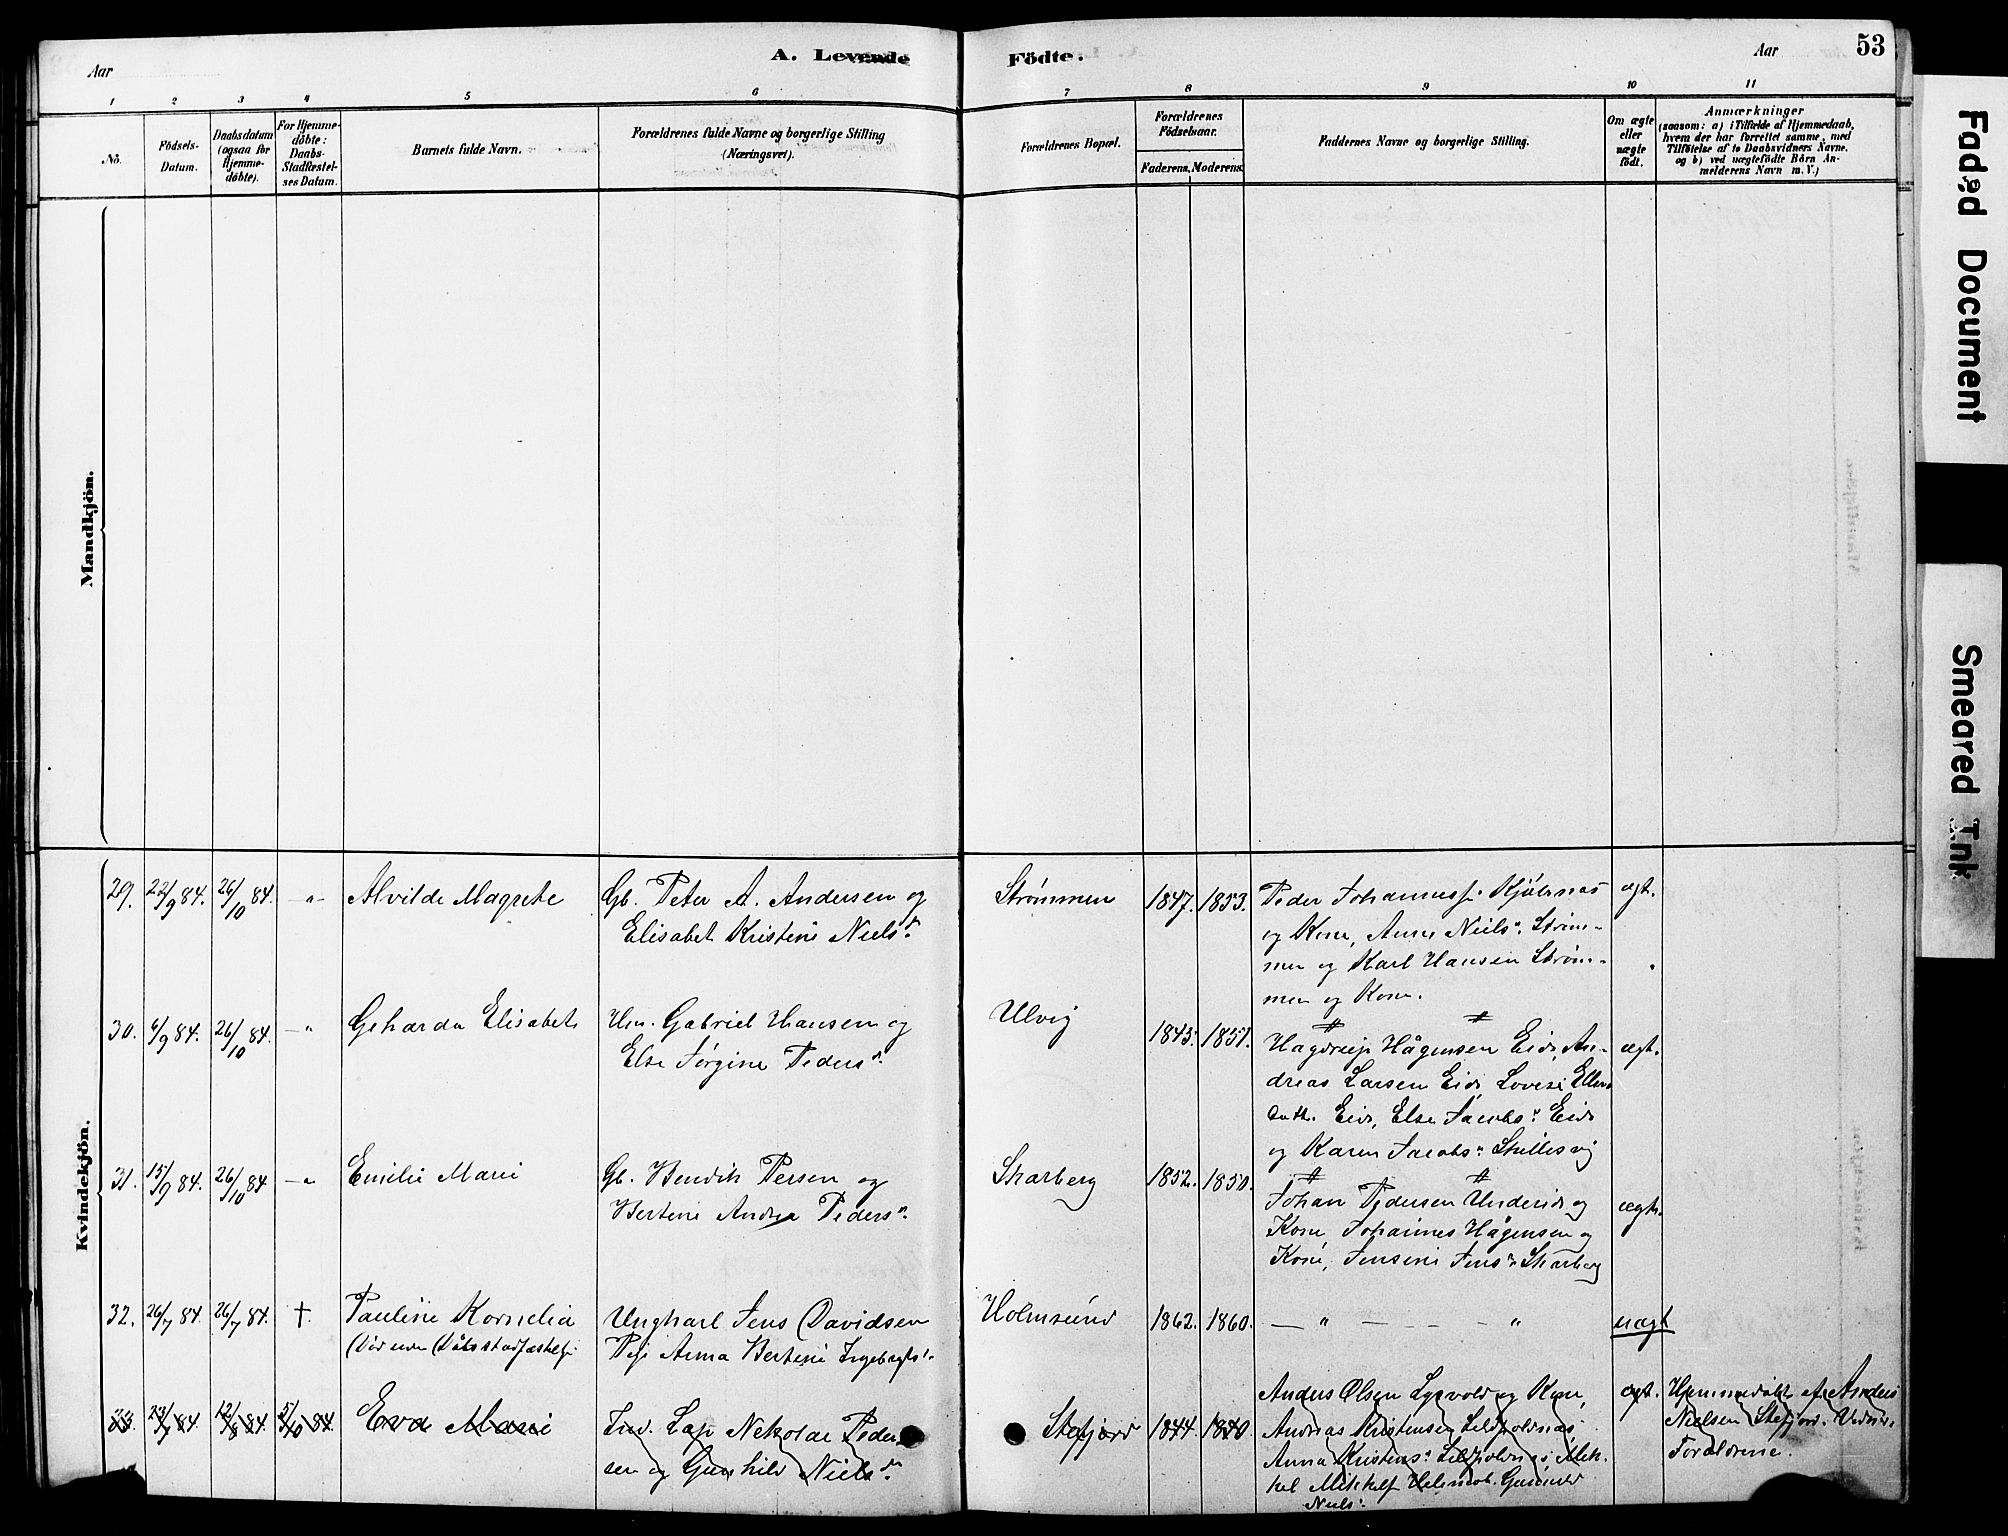 A. Levende Födte.
Aar
Aar
53
1 2 3 4 5 6 7 8 9 10 11
No.
Födsels-
Datum.
Daabsdatum
(ogsaa for
Hjemme-
döbte).
For Hjemme-
döbte:
Daabs-
Stadfæstel-
ses Datum.
Barnets fulde Navn.
Forældrenes fulde Navne og borgerlige Stilling
(Næringsvei).
Forældrenes Bopæl.
Forældrenes
Födselsaar.
Faderens. Moderens.
Faddernes Navne og borgerlige Stilling.
Om ægte
eller
uægte
födt.
Anmærkninger
(saasom: a) i Tilfælde af Hjemmedaab,
hvem der har forrettet samme, med
Tilföielse af to Daabsvidners Navne,
og b) ved uægtefödte Börn An-
melderens Navn m. V.)
Mandkjön.
Kvindekjön.
29. 22/9 84. 26/10 84. -"- Alvilde Magrete
Gb. Peter A. Andersen og
Elisabet Kristine Nielsn.
Strømmen 1847. 1853.
Peder Johanness. Kjölsnæs
og Kone, Anne Nielsn. Strøm-
men og Karl Hansen Strøm-
men og Kone.
ægt.
30. 6/9 84. 26/10 84. -"- Geharda Elisabet
Hm. Gabriel Hansen og
Else Jørgine Pedersn.
Ulvig 1843. 1851.
Hågensen Eide, An-
dreas Larsen Eide, Lovise
Eide, Else Jacobsn. Eide
og Karen Jacobsn. Skillesvig
ægt.
31. 15/9 84. 26/10 84 -"- Emilie Marie
Gb. Bendik Persen og
Bertine Andrea Pedersn.
Skarberg 1852. 1850.
Johan Pedersen Undereid og
Kone, Johannes Hågensen og
Kone, Jensine Jensn. Skarberg
ægt.
32. 26/7 84. 26/7 84. †. Pauline Kornelia
(Död uden Dåbsstadfæstelse
Ungkarl Jens Davidsen
Pige Anna Bertine Ingebrigts.
Holmsund 1862. 1860.
— " — — — — "
uægt
33. 23/7 84 12/8 84. 5/10 84. Eva Marie
Ind. Lap Nekolai Peder-
sen og Gunhild Nielsn.
Stefjord 1844. 1840
Anders Olsen Lysvold og Kone,
Andreas Kristensen
Anna Kristensn. Mik-
kel Mikkels.
Niels.
ægt.
Hjemmedöbt af Anders
Nielsen Stefjord. Vidner.
Forældrene.
Faded Document
Smeared Ink